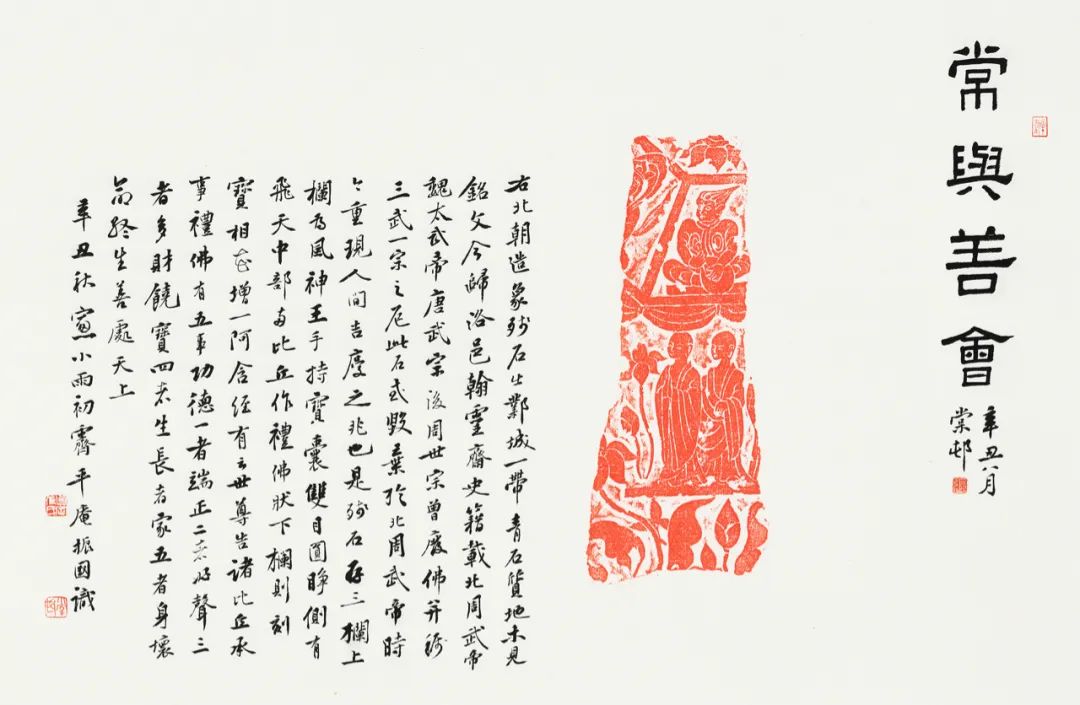 常與善會
辛丑八月
棠邨
右北朝造象殘石出鄴城一帶青石質地未見
銘文今歸洛邑翰靈齋史籍載北周武帝
魏太武帝唐武宗後周世宗曾廢佛并稱
三武一宗之厄此石或毀棄於北周武帝時
今重現人間吉慶之兆也是殘石存三欄上
欄為風神王手持寶囊雙目圓睜側有
飛天中部為比丘作禮佛狀下欄則刻
寶相花增一阿含經有云世尊告諸比丘承
事禮佛有五事功德一者端正二者好聲三
者多財饒寶四者生長者家五者身壞
命終生善處天上
辛丑秋窗小雨初霽平庵振國識